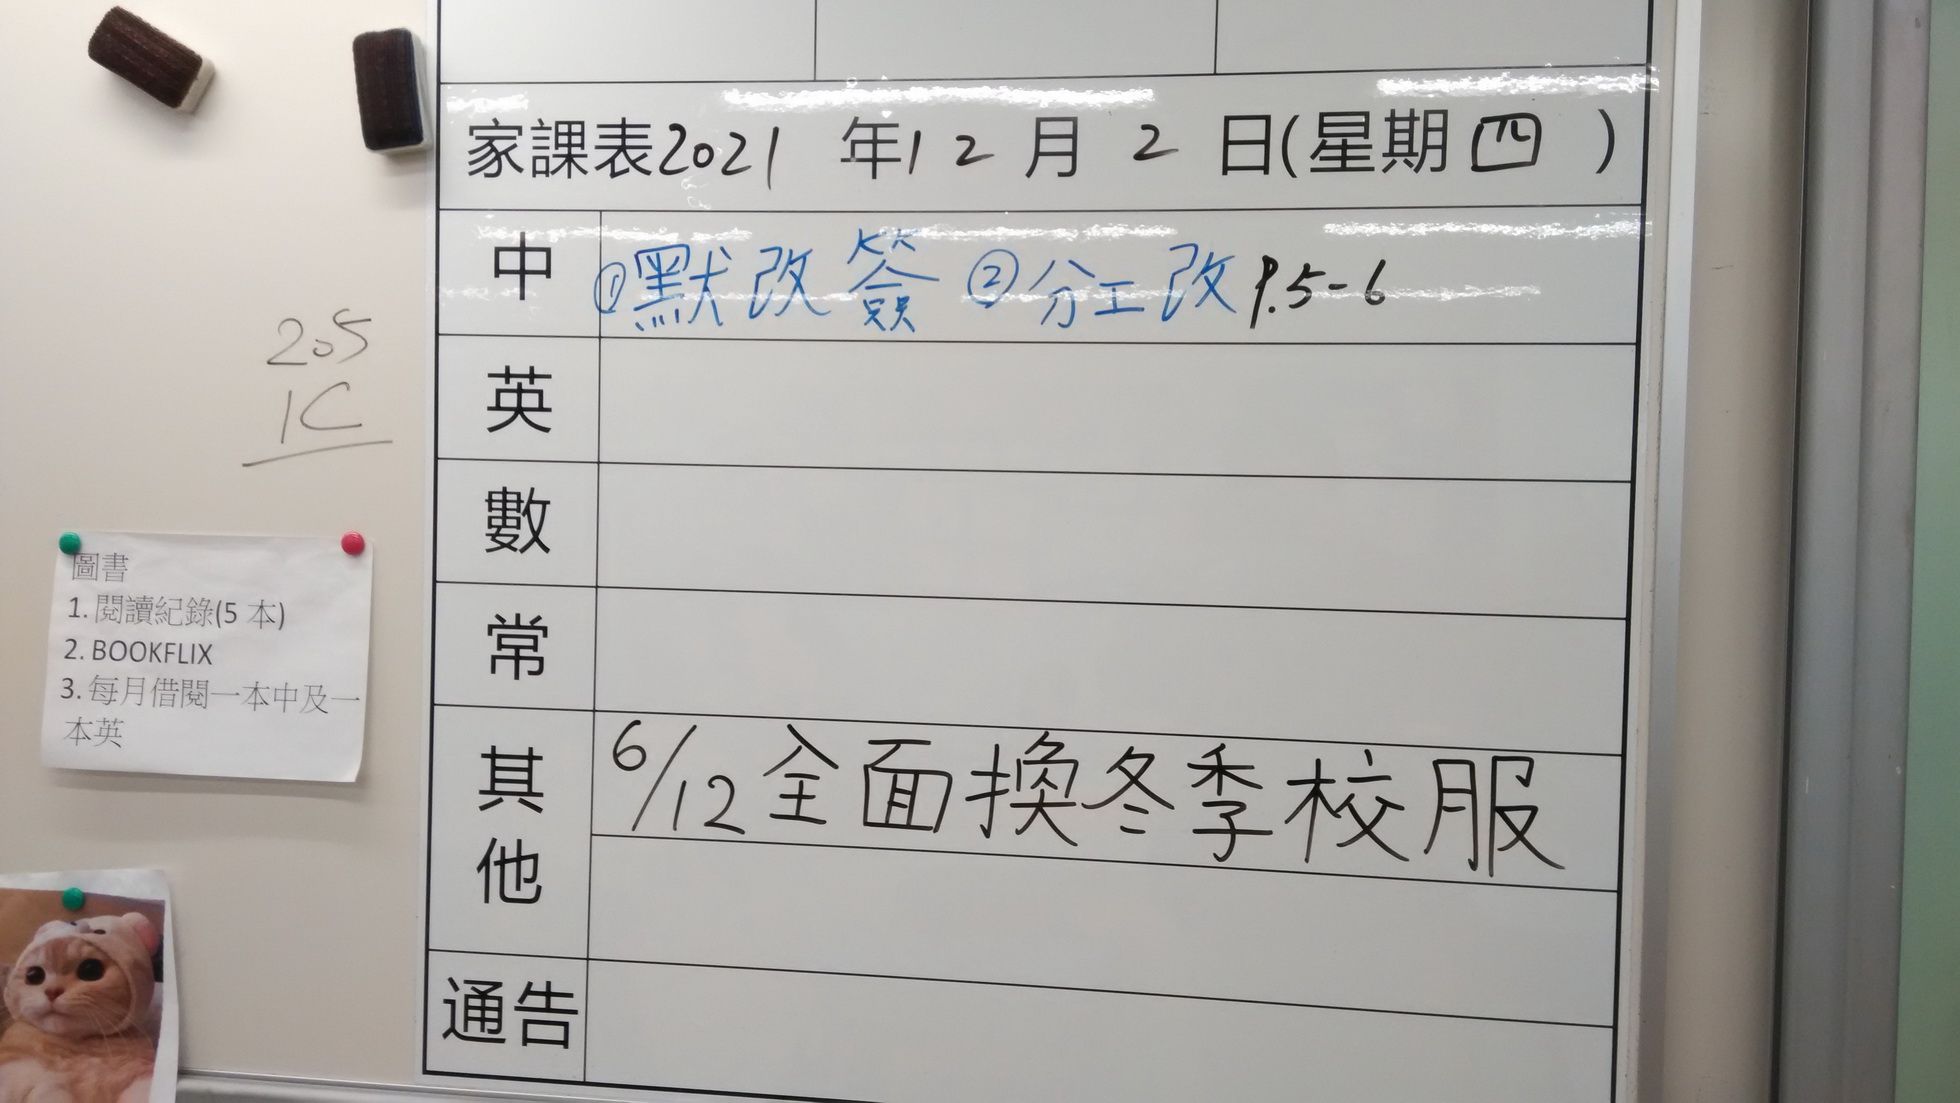 家課表2021年12月2日(星期四)
中 ①默改簽 ②分工改 P.5-6
英
數
常
其他 6/12全面換冬季校服
通告
205
1C
圖書
1. 閱讀紀錄(5 本)
2. BOOKFLIX
3. 每月借閱一本中及一
本英